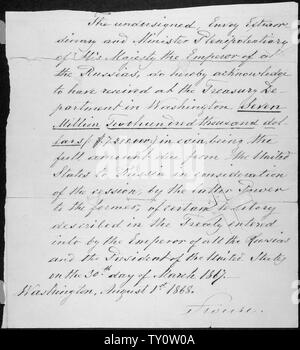 The undersigned, Envoy Extraor
dinary and Minister Plenipotentiary
of His Majesty the Emperor of all
the Russias, do hereby acknowledge
to have received at the Treasury De
partment in Washington Seven
Million Two hundred thousand dol
lars ($7,200,000) in coin, being the
full amount due from the United
States to Russia in consideration
of the cession, by the latter Power
to the former, of certain territory
described in the Treaty entered
into by the Emperor of all the Russias
and the President of the United States
on the 30th day of March 1867.
Washington, August 1st 1868.
Stoeckl
a
alamy
alamy
Image ID: TY0W0A
www.alamy.com